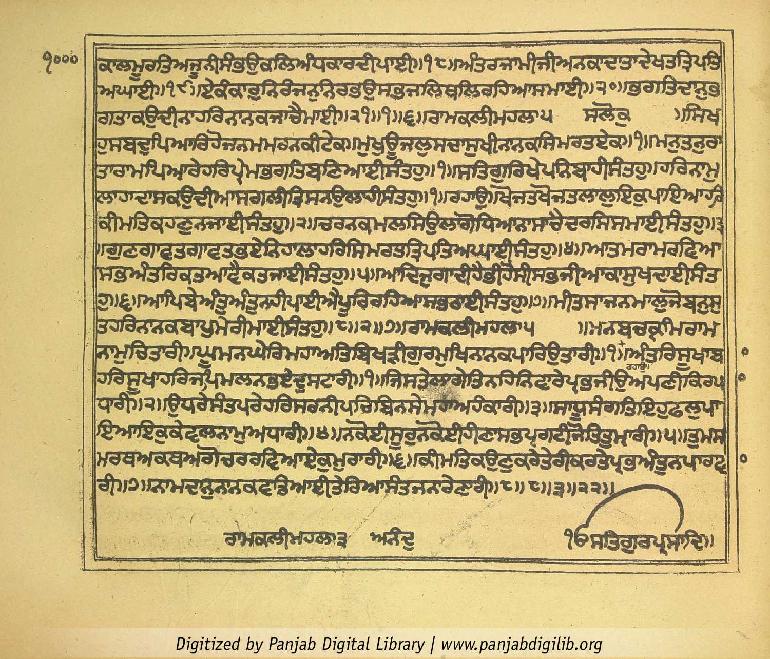 ੧੦੦੦
ਕਾਲਮੂਰਤਿਅਜੂਨੀਸੰਭਉਕਲਿਅੰਧਕਾਰਦੀਪਾਈ॥੧੮॥ਅੰਤਰਜਾਮੀਜੀਅਨਕਾਦਾਤਾਦੇਖਤਤ੍ਰਿਪਤਿ
ਅਘਾਈ॥੧੯॥ਏਕੰਕਾਰੁਨਿਰੰਜਨੁਨਿਰਭਉਸਭਜਲਿਥਲਿਰਹਿਆਸਮਾਈ॥੨੦॥ਭਗਤਿਦਾਨੁਭ
ਗਤਾਕਉਦੀਨਾਹਰਿਨਾਨਕਜਾਚੈਮਾਈ॥੨੧॥੧॥੬॥ਰਾਮਕਲੀਮਹਲਾ੫ ਸਲੋਕੁ ॥ਸਿਖ
ਹੁਸਬਦੁਪਿਆਰਿਹੋਜਨਮਮਰਨਕੀਟੇਕ॥ਮੁਖੁਊਜਲੁਸਦਾਸੁਖੀਨਾਨਕਸਿਮਰਤਏਕ॥੧॥ਮਨੁਤਨੁਰਾ
ਤਾਰਾਮਪਿਆਰੇਹਰਿਪ੍ਰੇਮਭਗਤਿਬਣਿਆਈਸੰਤਹੁ॥੧॥ਸਤਿਗੁਰਿਖੇਪਨਿਬਾਹੀਸੰਤਹੁ॥ਹਰਿਨਾਮੁ
ਲਾਹਾਦਾਸਕਉਦੀਆਸਗਲੀਤ੍ਰਿਸਨਉਲਾਹੀਸੰਤਹੁ॥੧॥ਰਹਾਉ॥ਖੋਜਤਖੋਜਤਲਾਲੁਇਕੁਪਾਇਆਹਰਿ
ਕੀਮਤਿਕਹਣੁਨਜਾਈਸੰਤਹੁ॥੨॥ਚਰਨਕਮਲਸਿਉਲਾਗੋਧਿਆਨਾਸਾਚੈਦਰਸਿਸਮਾਈਸੰਤਹੁ॥੩
॥ਗੁਣਗਾਵਤਗਾਵਤਭਏਨਿਹਾਲਾਹਰਿਸਿਮਰਤਤ੍ਰਿਪਤਿਅਘਾਈਸੰਤਹੁ॥੪॥ਆਤਮਰਾਮਰਵਿਆ
ਸਭਅੰਤਰਿਕਤਆਵੈਕਤਜਾਈਸੰਤਹੁ॥੫॥ਆਦਿਜੁਗਾਦੀਹੈਭੀਹੋਸੀਸਭਜੀਆਕਾਸੁਖਦਾਈਸੰਤ
ਹੁ॥੬॥ਆਪਿਬੇਅੰਤੁਅੰਤੁਨਹੀਪਾਈਐਪੂਰਿਰਹਿਆਸਭਠਾਈਸੰਤਹੁ॥੭॥ਮੀਤਸਾਜਨਮਾਲੁਜੋਬਨੁਸੁ
ਤਹਰਿਨਾਨਕਬਾਪੁਮੇਰੀਮਾਈਸੰਤਹੁ॥੮॥੨॥੭॥ਰਾਮਕਲੀਮਹਲਾ੫ ॥ਮਨਬਚਕ੍ਰਮਿਰਾਮ
ਨਾਮੁਚਿਤਾਰੀ॥ਘੂਮਨਘੇਰਿਮਹਾਅਤਿਬਿਖੜੀਗੁਰਮੁਖਿਨਾਨਕਪਾਰਿਉਤਾਰੀ॥੧॥ਅੰਤਰਿਸੂਖਾਬਾ
ਰਹਾਉ॥
ਹਰਿਸੂਖਾਹਰਿਜਪਿਮਲਨਭਏਦੁਸਟਾਰੀ॥੧॥ਜਿਸਤੇਲਾਗੇਤਿਨਹਿਨਿਵਾਰੇਪ੍ਰਭਜੀਉਅਪਣੀਕਿਰਪਾ
ਧਾਰੀ॥੨॥ਉਧਰੇਸੰਤਪਰੇਹਰਿਸਰਨੀਪਚਿਬਿਨਸੇਮਹਾਅਹੰਕਾਰੀ॥੩॥ਸਾਧੂਸੰਗਤਿਇਹੁਫਲੁਪਾ
ਇਆਇਕੁਕੇਵਲਨਾਮੁਅਧਾਰੀ॥੪॥ਨਕੋਈਸੂਰੁਨਕੋਈਹੀਣਾਸਭਪ੍ਰਗਟੀਜੋਤਿਤੁਮ੍ਹਾਰੀ॥੫॥ਤੁਮਸ
ਮਰਥਅਕਥਅਗੋਚਰਰਵਿਆਏਕੁਮੁਰਾਰੀ॥੬॥ਕੀਮਤਿਕਉਣੁਕਰੇਤੇਰੀਕਰਤੇਪ੍ਰਭਅੰਤੁਨਪਾਰਾਵਾ
ਰੀ॥੭॥ਨਾਮਦਾਨੁਨਾਨਕਵਡਿਆਈਤੇਰਿਆਸੰਤਜਨਾਰੇਣਾਰੀ॥੮॥੩॥੮॥੨੨॥
ਰਾਮਕਲੀਮਹਲਾ੩ ਅਨੰਦੁ ੴਸਤਿਗੁਰਪ੍ਰਸਾਦਿ॥
Digitized by Panjab Digital Library | www.panjabdigilib.org